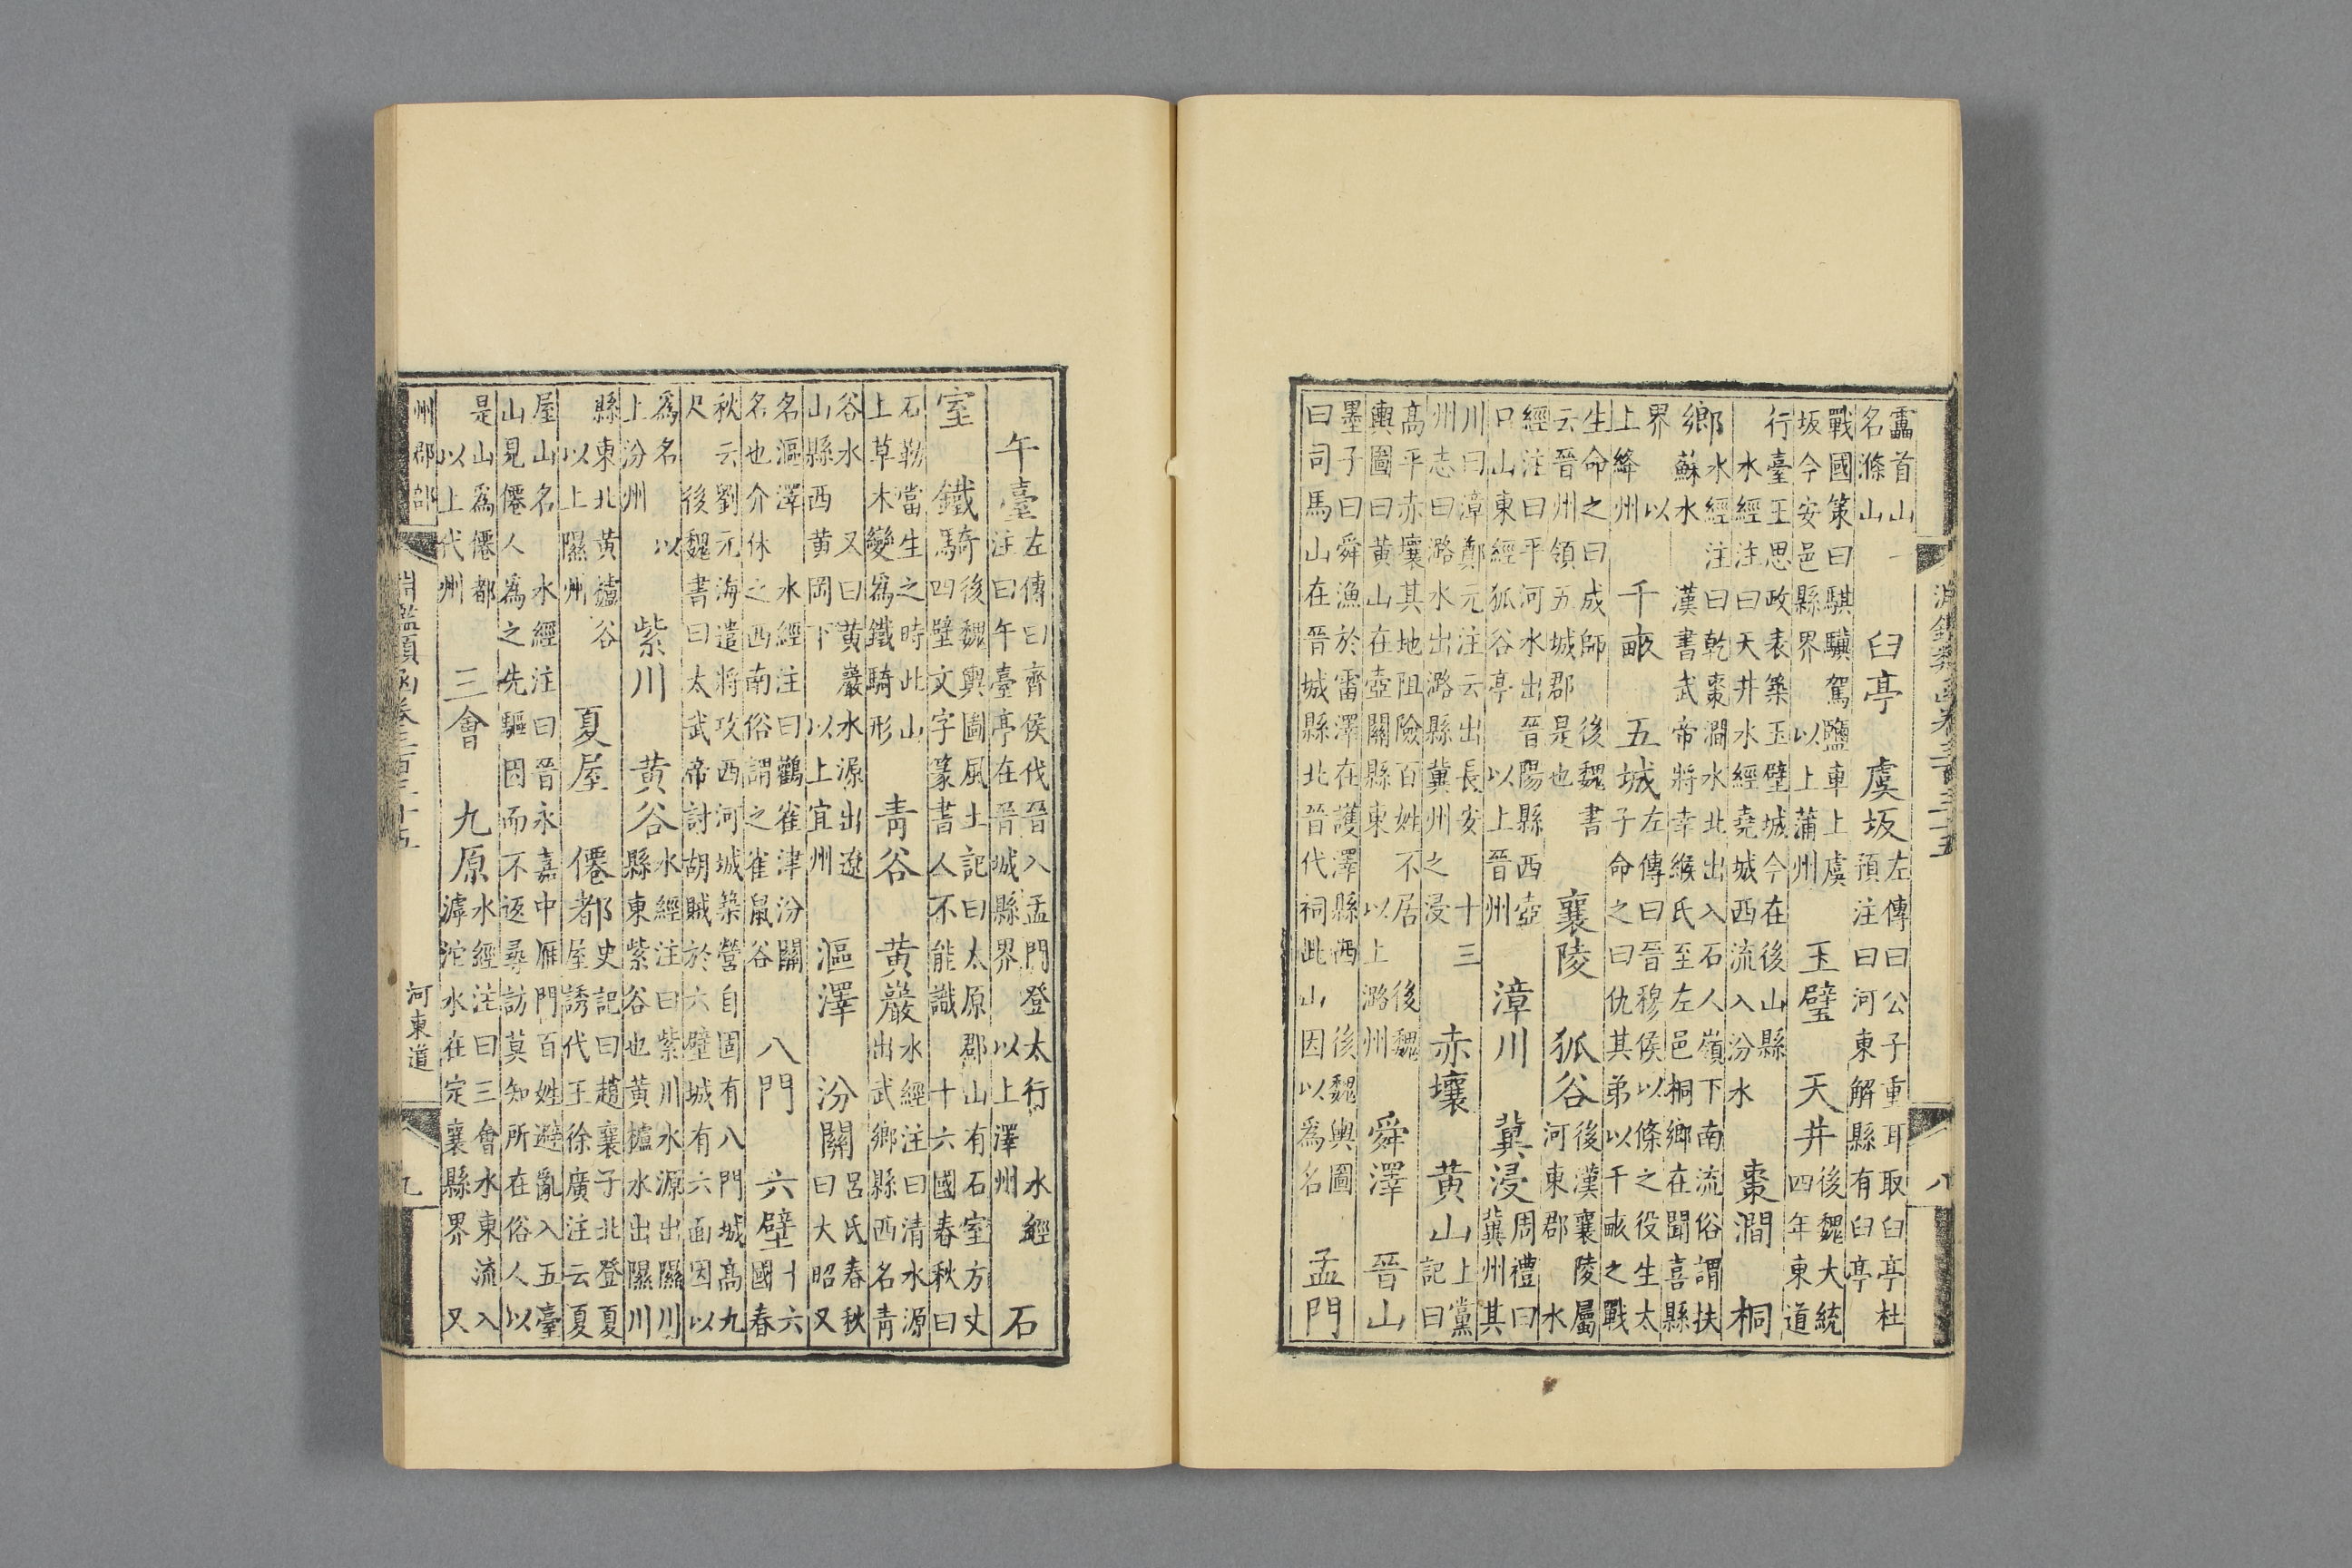 淵鑑類函卷三百三十五 八
靁首山一名滌山 臼亭 虞坂 左傳曰公子重耳取臼亭杜預注曰河東解縣有臼亭
戰國策曰騏驥駕鹽車上虞坂今安邑縣界 以上蒲州 玉璧 天井 後魏大統四年東道
行臺王思政表築玉壁城今在後山縣 水經注曰天井水經堯城西流入汾水 棗澗 桐
鄉 水經注曰乾棗澗水北出入石人嶺下南流俗謂扶蘇水 漢書武帝將幸緱氏至左邑桐鄉在聞喜縣
界 以上絳州 千畝 五城 左傳曰晉穆侯以條之役生太子命之曰仇其弟以千畝之戰
生命之曰成師 後魏書云晉州領五城郡是也 襄陵 狐谷 後漢襄陵屬河東郡 水
經注曰平河水出晉陽縣西壺口山東經狐谷亭 以上晉州 漳川 冀浸 周禮曰冀州其
川曰漳鄭元注云出長安 十三州志曰潞水出潞縣冀州之浸 赤壤 黃山 上黨記曰
高平赤壤其地阻險百姓不居 後魏輿圖曰黃山在壺關縣東 以上潞州 舜澤 晉山
墨子曰舜漁於雷澤在護澤縣西 後魏輿圖曰司馬山在晉城縣北晉代祠此山因以為名 孟門
午臺 左傳曰齊侯伐晉入孟門登太行 水經注曰午臺亭在晉城縣界 以上澤州 石
室 鐵騎 後魏輿圖風土記曰太原郡山有石室方丈四壁文字篆書人不能識 十六國春秋曰
石勒當生之時此山上草木變為鐵騎形 青谷 黃巖 水經注曰清水源出武鄉縣西名青
谷水 又曰黃巖水源出遼山縣西黃岡下 以上宜州 漚澤 汾關 呂氏春秋曰大昭又
名漚澤 水經注曰鸛雀津汾關名也介休之西南俗謂之雀鼠谷 八門 六壁 十六國春
秋云劉元海遣將攻西河城築營自固有八門城高九尺 後魏書曰太武帝討胡賊於六壁城有六面因以
為名 以上汾州 紫川 黃谷 水經注曰紫川水源出隰川縣東紫谷也黃櫨水出隰川
縣東北黃櫨谷 以上隰州 夏屋 僊都 史記曰趙襄子北登夏屋誘代王徐廣注云夏
屋山名 水經注曰晉永嘉中雁門百姓避亂入五臺山見僊人為之先驅因而不返尋訪莫知所在俗人以
是山為僊都 以上代州 三會 九原 水經注曰三會水東流入滹沱水在定襄縣界 又
州郡部 淵鑑類函卷三百三十五 河東道 九